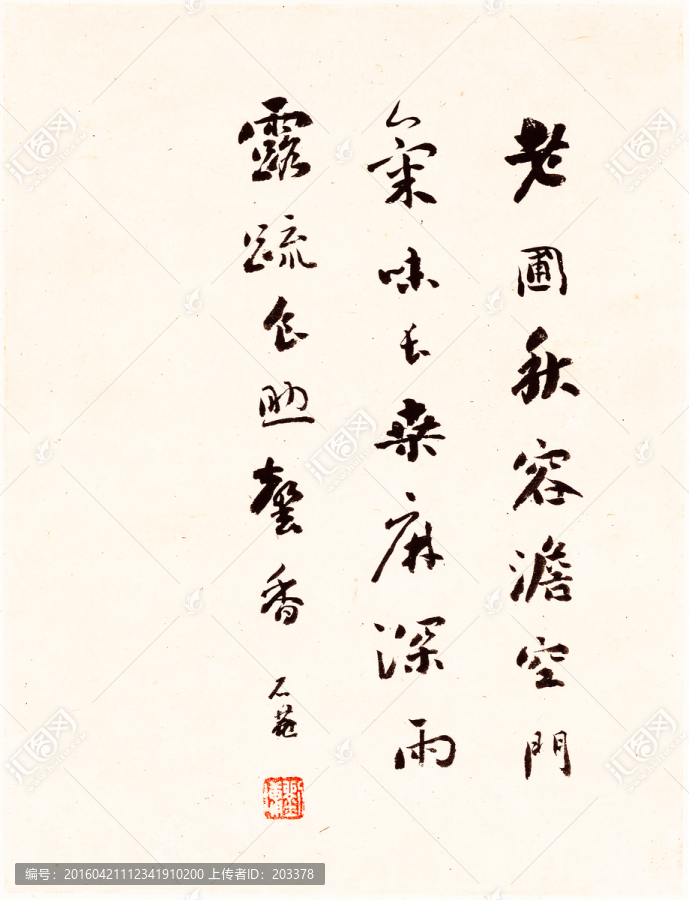 老圃秋容澹空門
氣味長桑麻深雨
露蔬食助馨香
石庵
编号：20160421112341910200 上传者ID：203378
汇图网